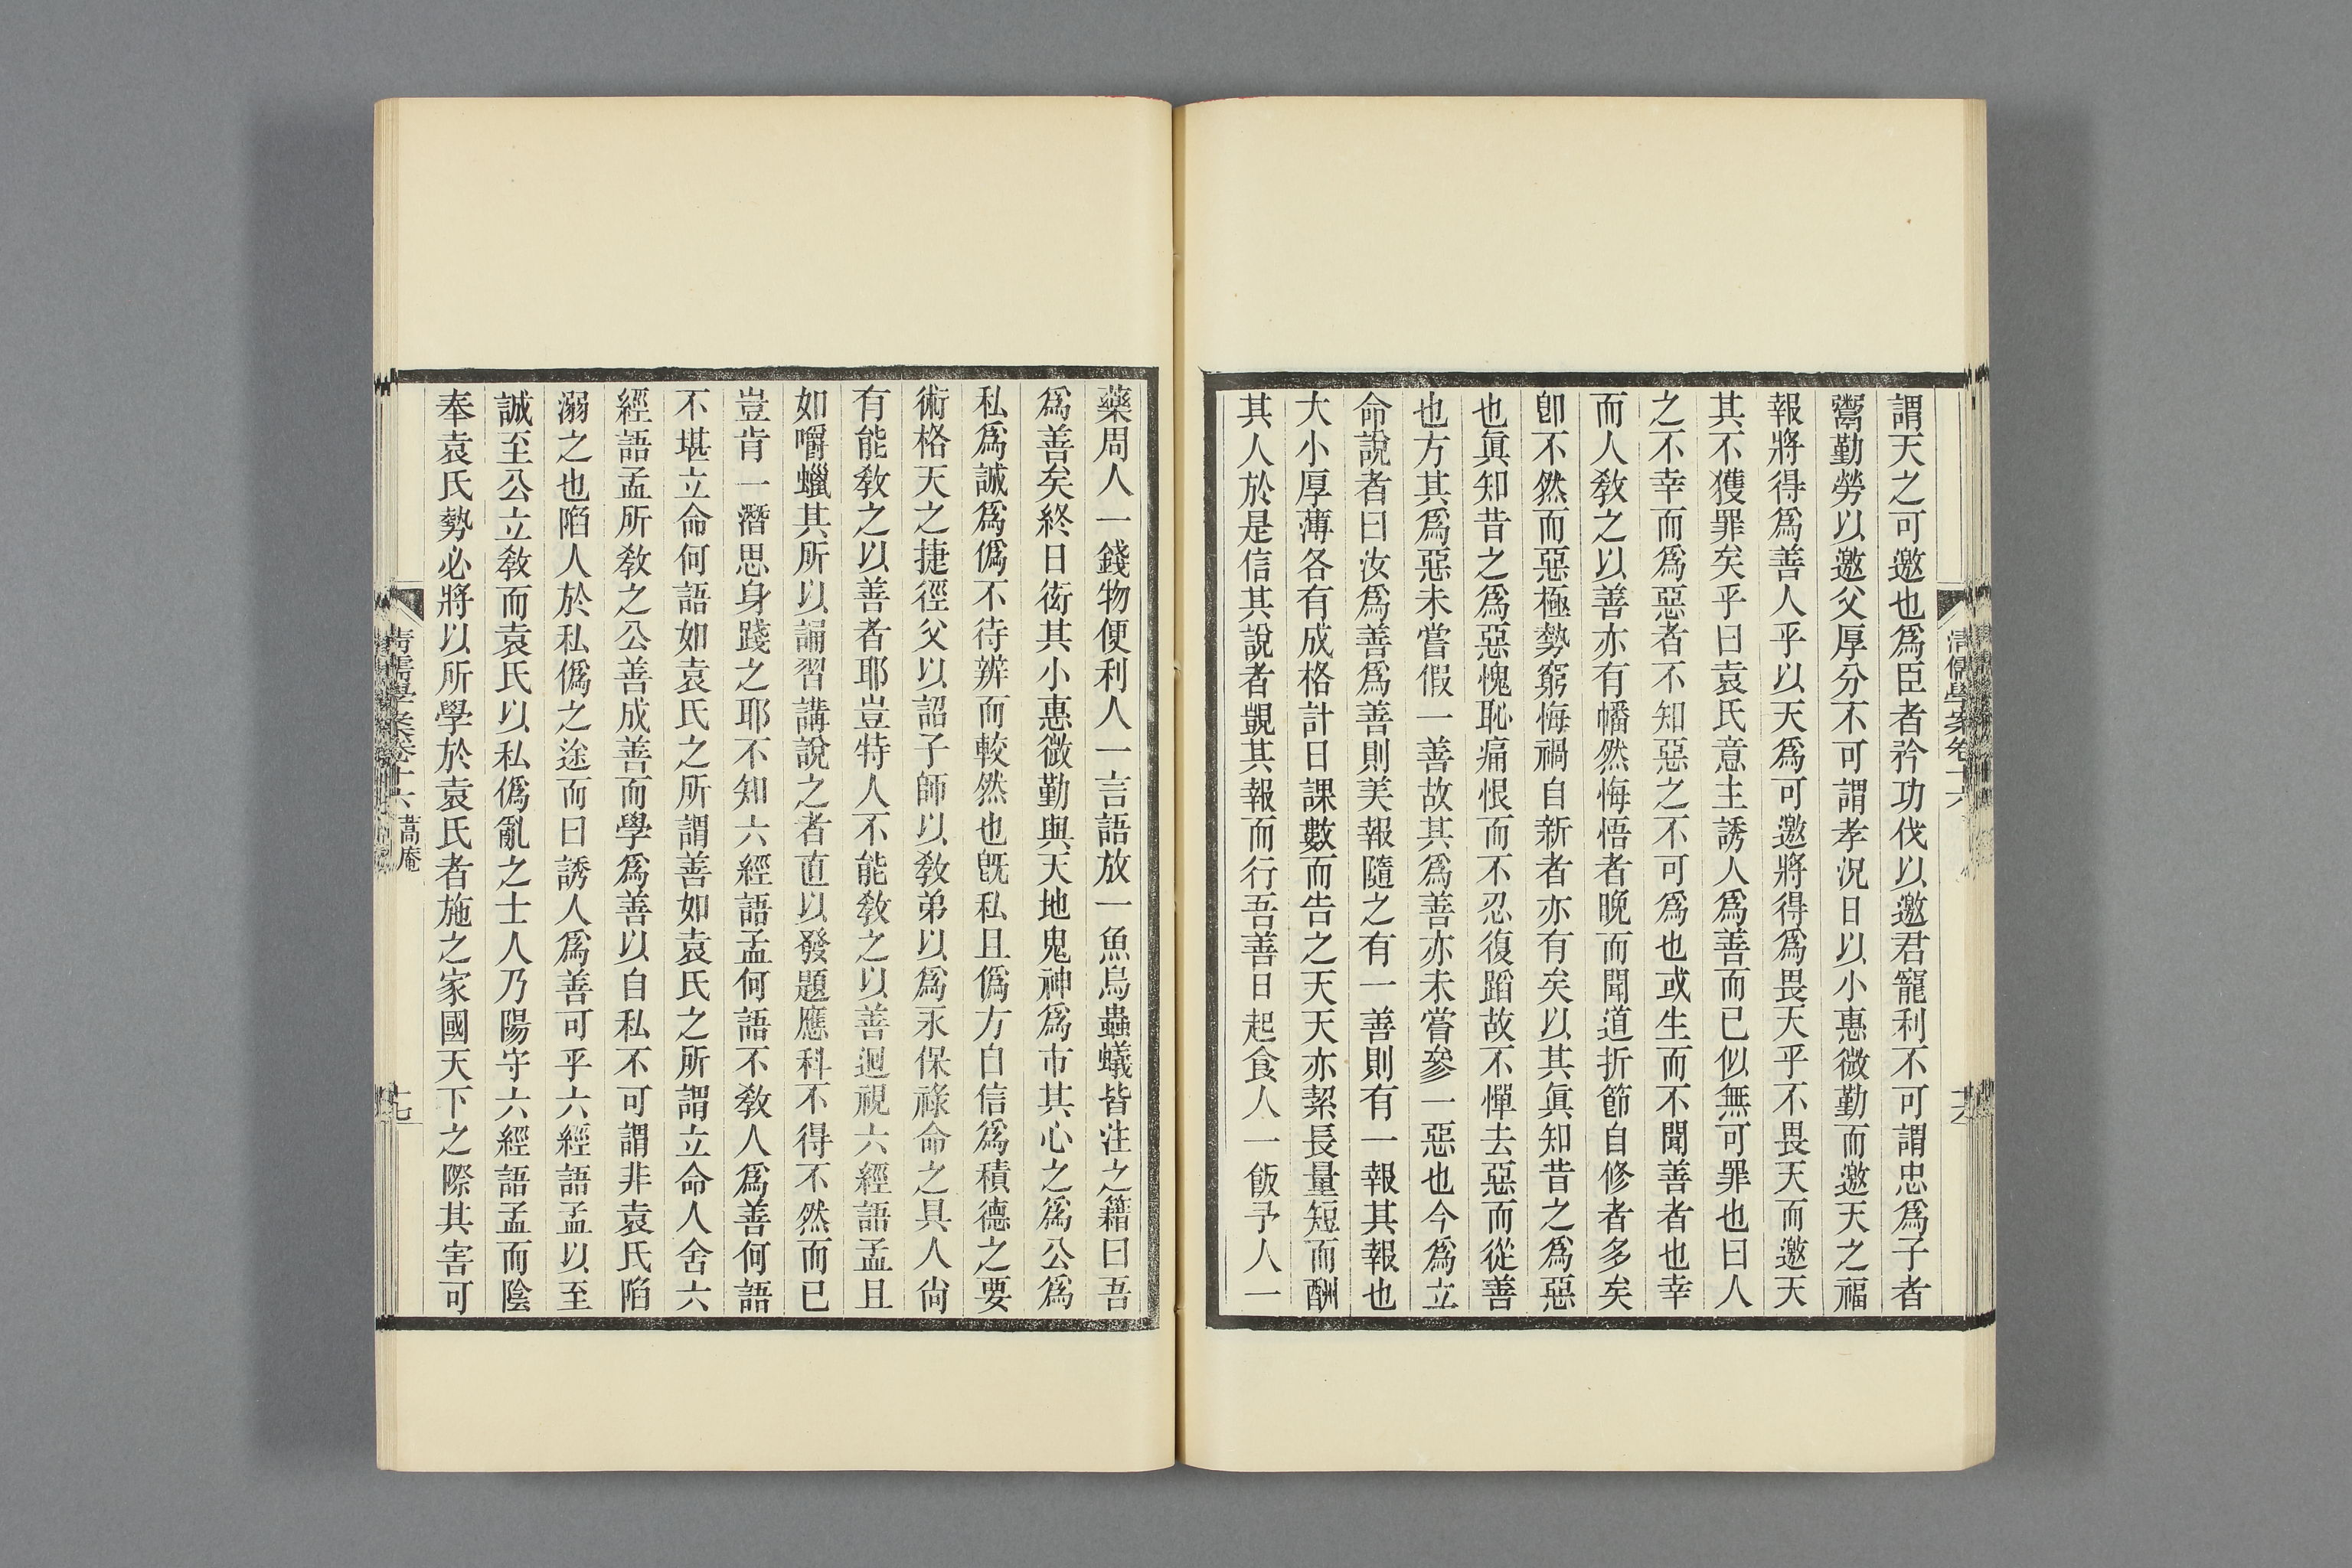 謂天之可邀也爲臣者矜功伐以邀君寵利不可謂忠爲子者
鬻勤勞以邀父厚分不可謂孝況日以小惠微勤而邀天之福
報將得爲善人乎以天爲可邀將得爲畏天乎不畏天而邀天
其不獲罪矣乎曰袁氏意主誘人爲善而已似無可罪也曰人
之不幸而爲惡者不知惡之不可爲也或生而不聞善者也幸
而人敎之以善亦有幡然悔悟者晚而聞道折節自修者多矣
卽不然而惡極勢窮悔禍自新者亦有矣以其眞知昔之爲惡
也眞知昔之爲惡愧恥痛恨而不忍復蹈故不憚去惡而從善
也方其爲惡未嘗假一善故其爲善亦未嘗參一惡也今爲立
命說者曰汝爲善爲善則美報隨之有一善則有一報其報也
大小厚薄各有成格計日課數而告之天天亦絜長量短而酬
其人於是信其說者覬其報而行吾善日起食人一飯予人一
藥周人一錢物便利人一言語放一魚鳥蟲蟻皆注之籍曰吾
爲善矣終日衒其小惠微勤與天地鬼神爲市其心之爲公爲
私爲誠爲僞不待辨而較然也旣私且僞方自信爲積德之要
術格天之捷徑父以詔子師以敎弟以爲永保祿命之具人尙
有能敎之以善者耶豈特人不能敎之以善迴視六經語孟且
如嚼蠟其所以誦習講說之者直以發題應科不得不然而已
豈肯一潛思身踐之耶不知六經語孟何語不敎人爲善何語
不堪立命何語如袁氏之所謂善如袁氏之所謂立命人舍六
經語孟所敎之公善成善而學爲善以自私不可謂非袁氏陷
溺之也陷人於私僞之途而曰誘人爲善可乎六經語孟以至
誠至公立敎而袁氏以私僞亂之士人乃陽守六經語孟而陰
奉袁氏勢必將以所學於袁氏者施之家國天下之際其害可
清儒學案卷十六
清儒學案卷十六 蒿庵
十七